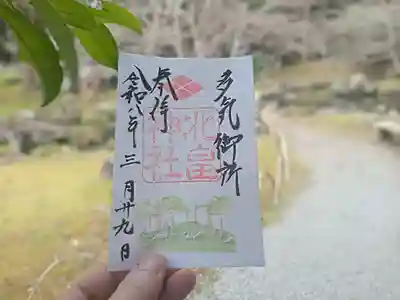 多気御所
奉拝
北畠
神社
令和八年三月廿九日